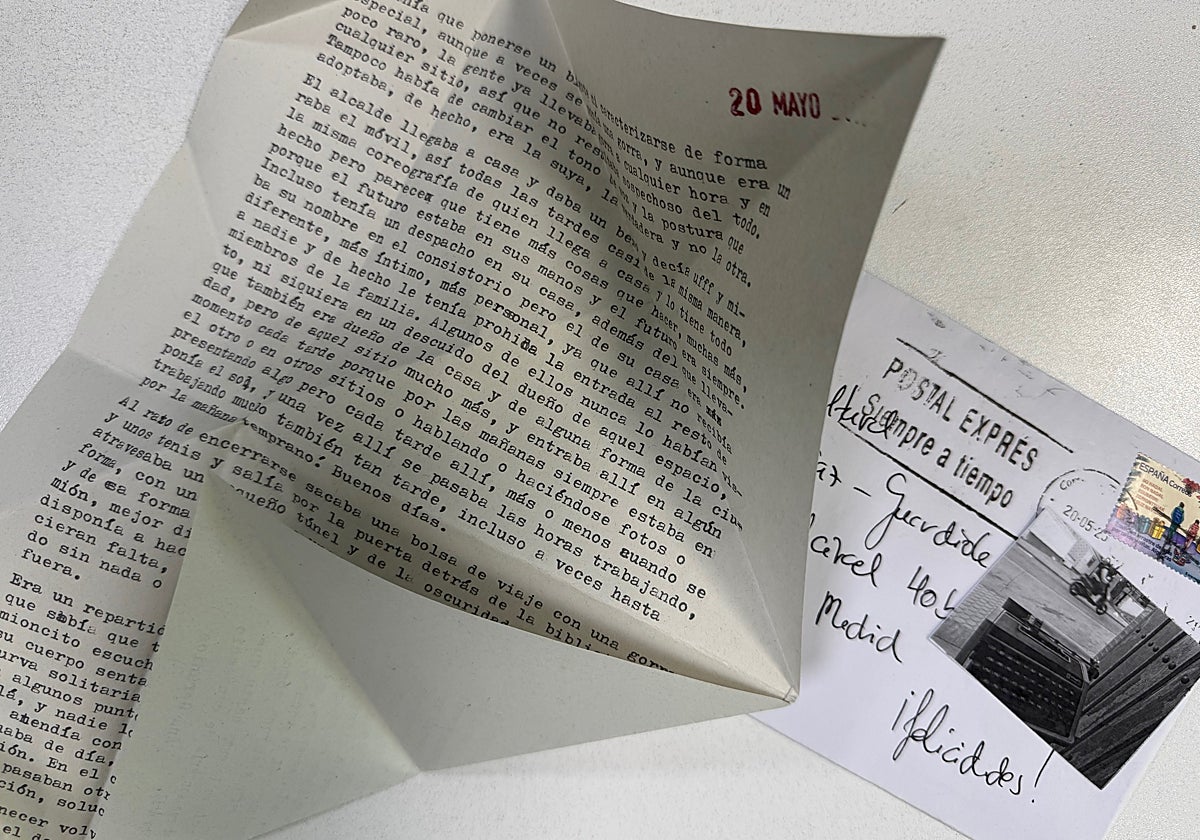 que ponerse un
caracterizarse de forma
especial, aunque a veces se una gorra, y aunque era un
poco raro, la gente ya llevaba a cualquier hora y en
cualquier sitio, así que no sospechoso del todo.
Tampoco había de cambiar el tono y la postura que
adoptaba, de hecho, era la suya, la verdadera y no la otra.
El alcalde llegaba a casa y daba un y decía ufff y mi-
raba el móvil, así todas las tardes casi de la misma manera,
la misma coreografía de quien llega a casa y lo tiene todo
hecho pero parecem que tiene más cosas que hacer, muchas más,
porque el futuro estaba en sus manos y el futuro era siempre.
Incluso tenía un despacho en su casa, además del que lleva-
ba su nombre en el consistorio pero el de su casa era más
diferente, más íntimo, más personal, ya que allí no recibía
a nadie y de hecho le tenía prohibida la entrada al resto de
miembros de la familia. Algunos de ellos nunca lo habían vis-
to, ni siquiera en un descuido del dueño de aquel espacio,
que también era dueño de la casa y de alguna forma de la ciu-
dad, pero de aquel sitio mucho más, y entraba allí en algún
momento cada tarde porque por las mañanas siempre estaba en
el otro o en otros sitios o hablando o haciéndose fotos o
presentando algo pero cada tarde allí, más o menos cuando se
ponía el sol, y una vez allí se pasaba las horas trabajando,
trabajando mucho también tan tarde, incluso a veces hasta
por la mañana temprano. Buenos días.
Al rato de encerrarse sacaba una bolsa de viaje con una gorra
y unos tenis y salía por la puerta detrás de la
atravesaba un pequeño túnel y de la oscuridad
forma, con un
y de esa forma
mión, mejor di
disponía a hac
cieran falta,
do sin nada o
fuera.
Era un repartid
que sabía que
mioncito escuch
su cuerpo senta
curva solitaria
algunos punt
y nadie
atendía con
de día,
En el
pasaban otr
ción, soluc
necer volv
20 MAYO
POSTAL EXPRÉS
Siempre a tiempo
Guardiola
Madrid
¡felicidades!
ESPAÑA Correos
20-05-25